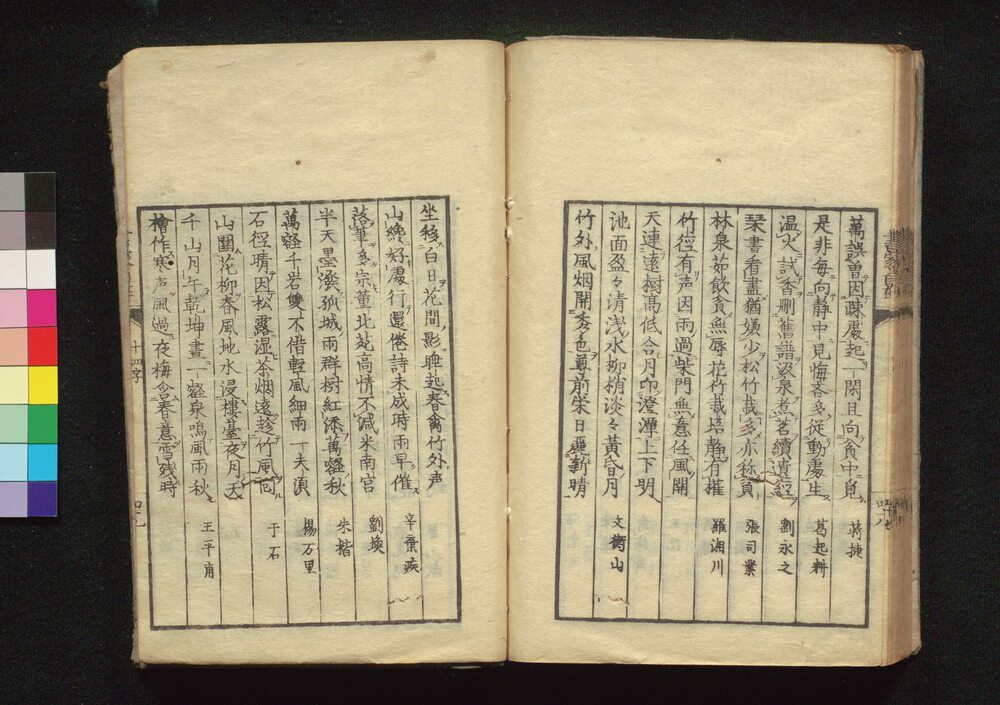 萬誤曽因疎處起一閑且向貪中覓 蒋捷
是非每向静中見悔吝多従動處生 葛起耕
温火試香刪舊譜汲泉煮茗續遺經 劉永之
栞書看盡猶嫌少松竹栽多亦称貧 張司業
林泉茹飲貧無辱花竹栽培静有權 羅湘川
竹徑有声因雨過柴門無意任風開
天連遠樹髙低合月印澄潭上下明
池面盈々清浅水柳梢淡々黄昏月 文衡山
竹外風烟開秀色尊前栄日麗新晴
坐移白日花間影睡起春禽竹外声
山纔好處行還倦詩未成時雨早催 辛棄疾
落筆多宗董北苑高情不減米南宮 劉煥
半天墨潑孤城雨群樹紅添萬壑秋 朱楷
萬壑千岩雙不借輕風細雨一夫須 楊万里
石徑晴因松露湿茶烟遠趁竹風囘 于石
山圍花柳春風地水浸樓臺夜月天
千山月午乾坤晝一壑泉鳴風雨秋 王平甫
檜作寒声風過夜梅含春意雪殘時
十四字
四十八
四九